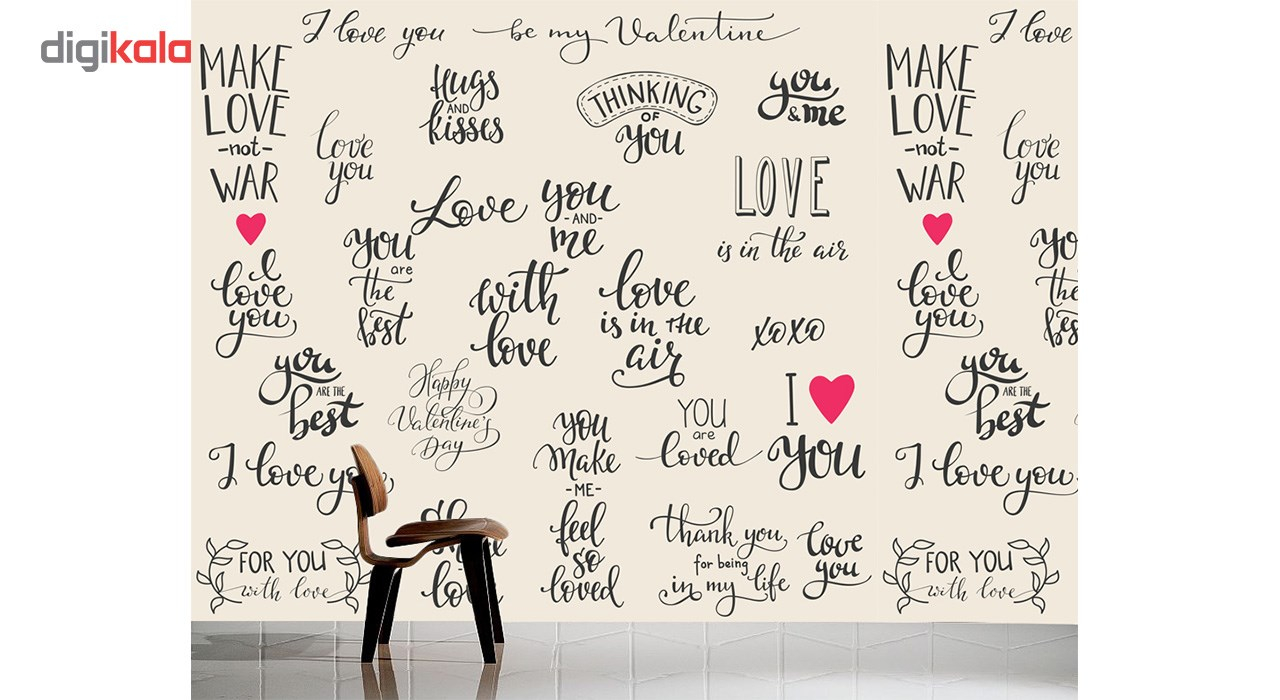 digikala
I love you be my Valentine
I love
MAKE
LOVE
-not-
WAR
Hugs
AND
kisses
THINKING
OF
you
you
&me
love
you
Love
you
-AND-
me
LOVE
is in the air
You
are
the
best
I
love
you
with
love
love
is in the
air
xoxo
you
ARE THE
best
Happy
Valentine's
Day
you
make
-ME-
feel
so
loved
YOU
are
loved
I
You
I love you
FOR YOU
with love
love
thank you
for being
in my life
love
you
MAKE
LOVE
-not-
WAR
love
you
I
love
you
yo
the
bes
you
ARE THE
best
I love you
FOR YOU
with love